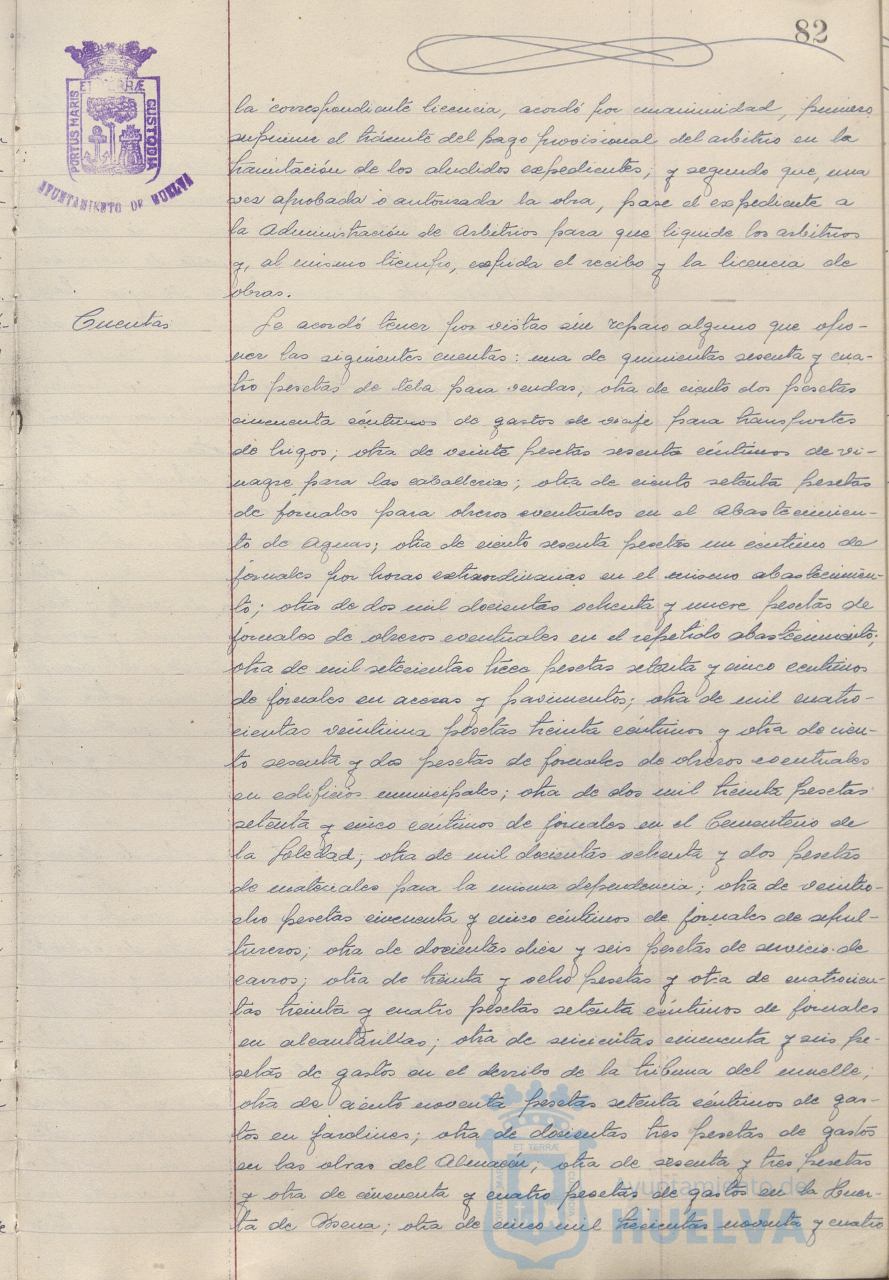 82
ET TERRÆ
PORTUS MARIS
CUSTODIA
AYUNTAMIENTO DE HUELVA
la correspondiente licencia, acordó por unanimidad, primero
suprimir el trámite del pago provisional del arbitrio en la
tramitación de los aludidos expedientes, y segundo que, una
vez aprobada o autorizada la obra, pase el expediente a
la Administración de Arbitrios para que liquide los arbitrios
y, al mismo tiempo, expida el recibo y la licencia de
obras.
Cuentas
Se acordó tener por vistas sin reparo alguno que opo-
ner las siguientes cuentas: una de quinientas sesenta y cua-
tro pesetas de tela para vendas; otra de ciento dos pesetas
cincuenta céntimos de gastos de para transportes
de higos; otra de veinte pesetas sesenta céntimos de vi-
nagre para las caballerias; otra de ciento setenta pesetas
de jornales para obreros eventuales en el Abastecimien-
to de Aguas; otra de ciento sesenta pesetas un céntimo de
jornales por horas extraordinarias en el mismo abastecimien-
to; otra de dos mil docientas ochenta y nueve pesetas de
jornales de obreros eventuales en el repetido abastecimiento;
otra de mil setecientas trece pesetas setenta y cinco centimos
de jornales en aceras y pavimentos; otra de mil cuatro-
cientas veintiuna pesetas treinta céntimos y otra de cien-
to sesenta y dos pesetas de jornales de obreros eventuales
en edificios municipales; otra de dos mil treinta pesetas
setenta y cinco céntimos de jornales en el Cementerio de
la Soledad; otra de mil docientas ochenta y dos pesetas
de materiales para la misma dependencia; otra de veintio-
cho pesetas cincuenta y cinco céntimos de jornales de sepul-
tureros; otra de docientas diez y seis pesetas de servicio de
carros; otra de treinta y ocho pesetas y otra de cuatrocien-
tas treinta y cuatro pesetas setenta céntimos de jornales
en alcantarillas; otra de seicientas cincuenta y seis pe-
setas de gastos en el derribo de la tribuna del muelle;
otra de ciento noventa pesetas setenta céntimos de gas-
tos en jardines; otra de docientas tres pesetas de gastos
en las obras del Almacén; otra de sesenta y tres pesetas
y otra de cincuenta y cuatro pesetas de gastos en la Huer-
ta de Mena; otra de cinco mil trecientas noventa y cuatro
ET TERRÆ
Ayuntamiento de
HUELVA